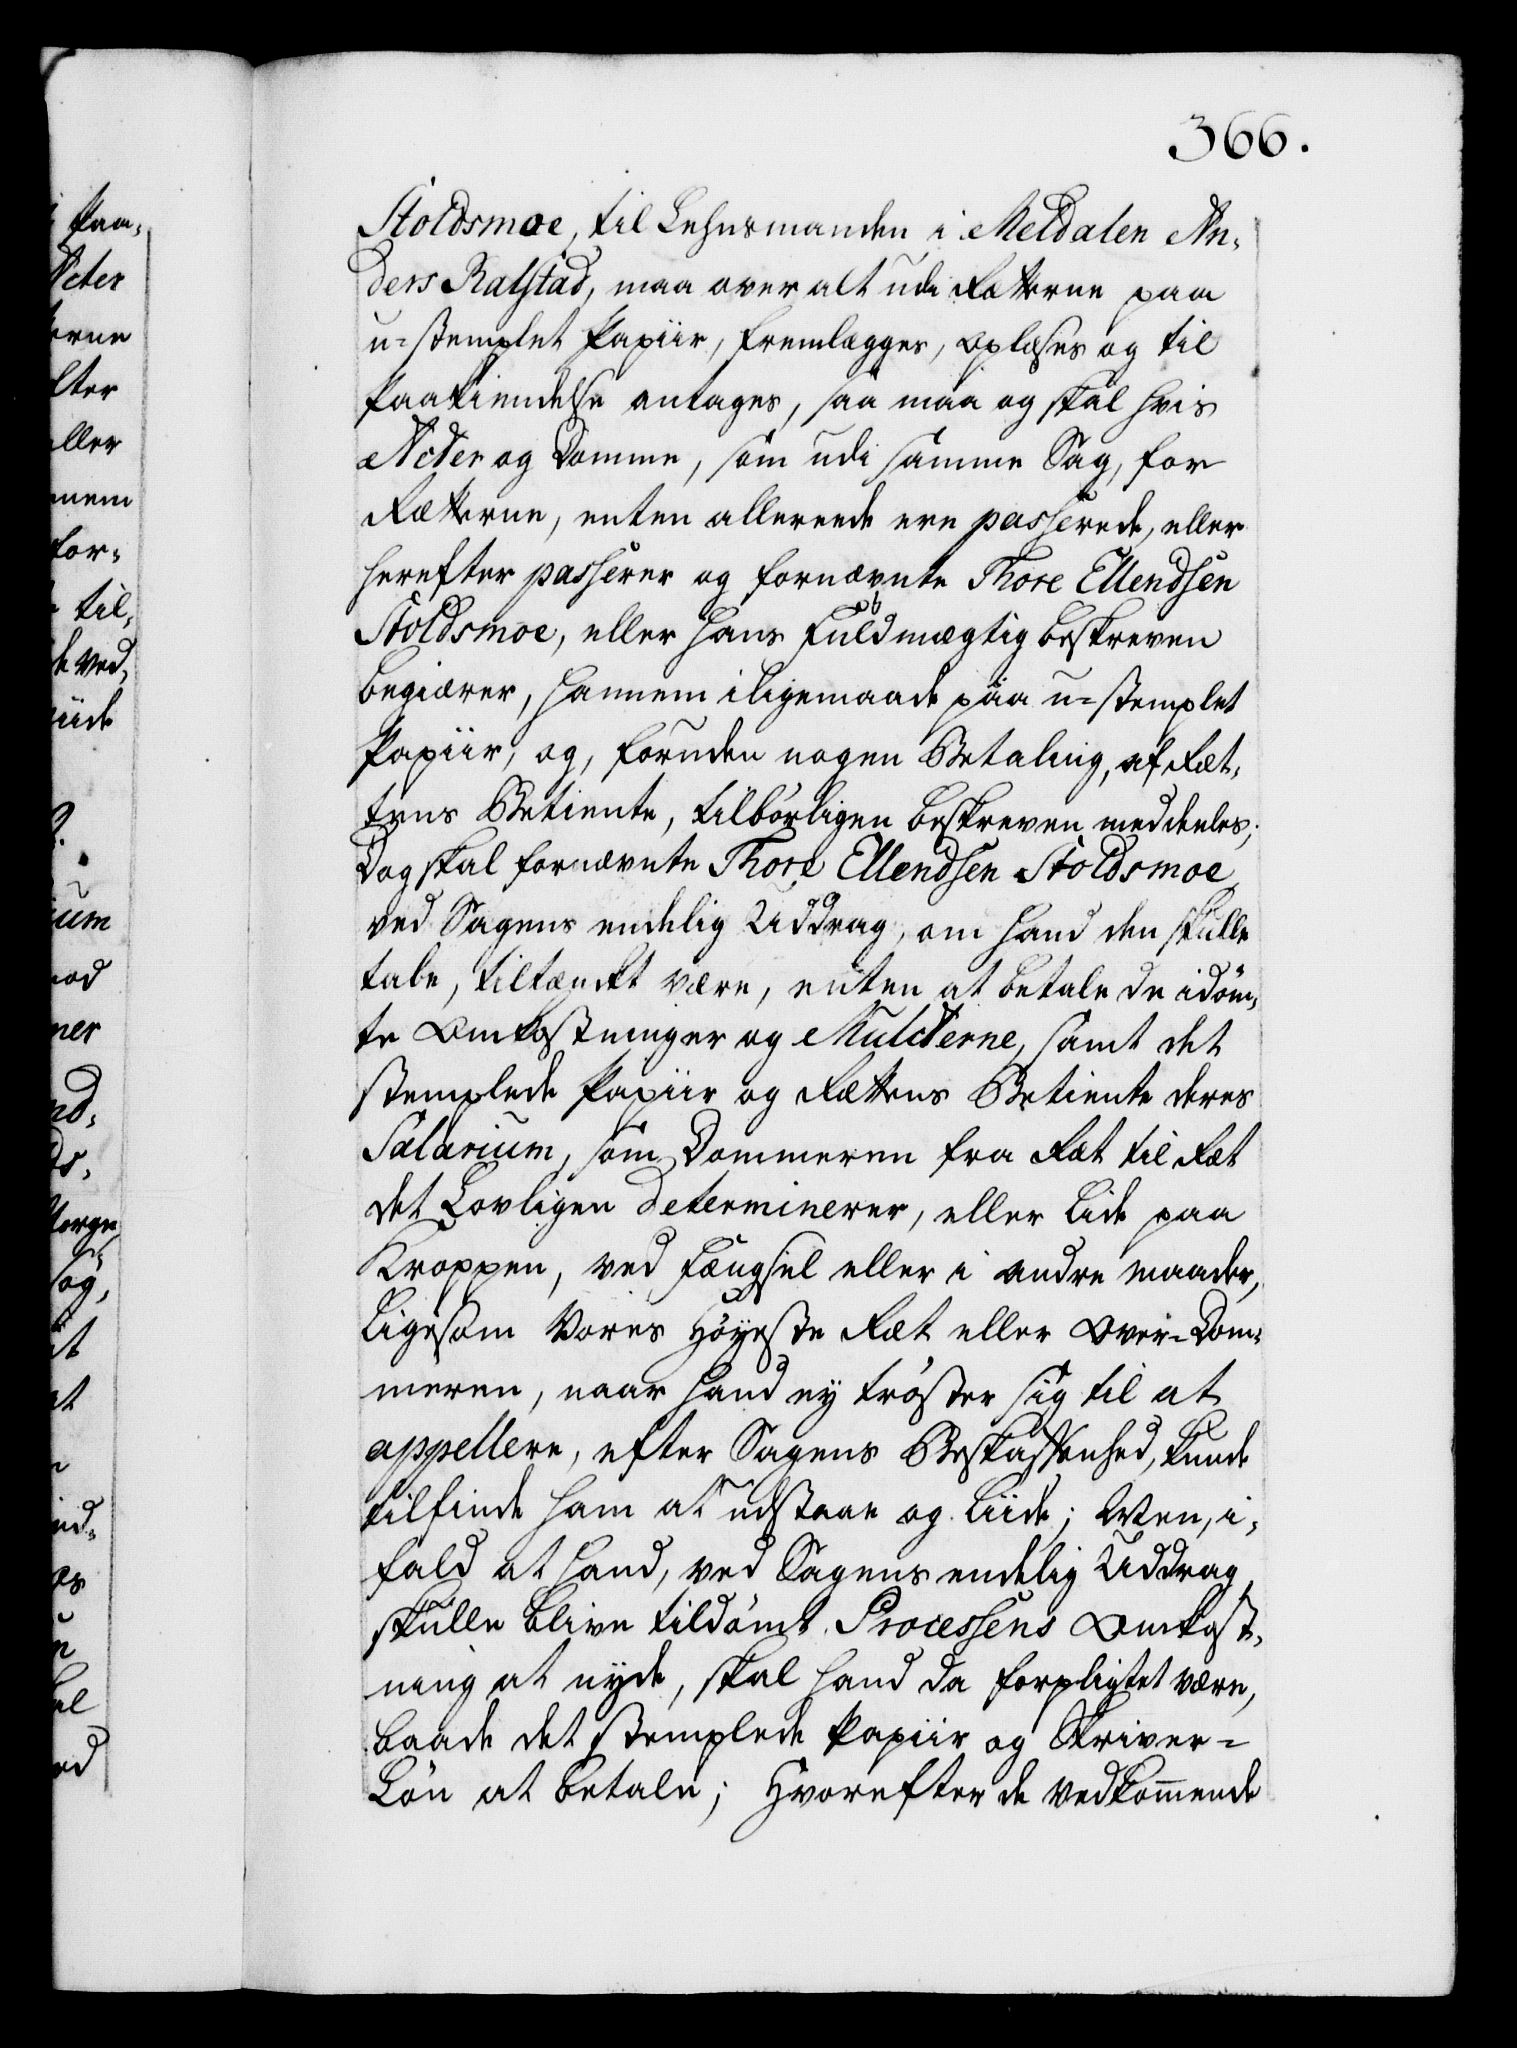 366.
Stoldsmoe, til Lehnsmanden i Meldalen An-
ders Ralstad, maa over alt udi Retterne paa
u-stemplet Papiir, fremlægges, oplæses og til
Paakiendelse antages, saa maa og skal hvis
Acter og Domme, som udi samme Sag, for
Rætterne, enten allereede ere passerede, eller
herefter passerer og fornævnte Thore Ellendsen
Stoldsmoe, eller hans Fuldmægtig beskreven
begiærer, hannem iligemaade paa u-stemplet
Papiir, og, foruden nogen Betaling, af Ræt-
tens Betiente, tilbørligen beskreven meddeles;
Dog skal fornævnte Thore Ellendsen Stoldsmoe
ved Sagens endelig Uddrag, om hand den skulle
tabe, tiltænckt være, enten at betale de idöm-
te Omkostninger og Mulcterne, samt det
stemplede Papiir og Rættens Betiente deres
Salarium, som Dommeren fra Ræt til Ræt
det Lovligen determinerer, eller lide paa
Kroppen, ved Fængsel eller i andre maader,
ligesom Vores Höyeste Ræt eller Over-Dom-
meren, naar hand ey tröster sig til at
appellere, efter Sagens Beskaffenhed, kunde
tilfinde ham at udstaae og liide; Men, i-
fald at hand, ved Sagens endelig Uddrag
skulle blive tildömt Processens Omkost-
ning at nyde, skal hand da forpligtet være,
baade det stemplede Papiir og Skriver-
Lön at betale; Hvorefter de vedkommende